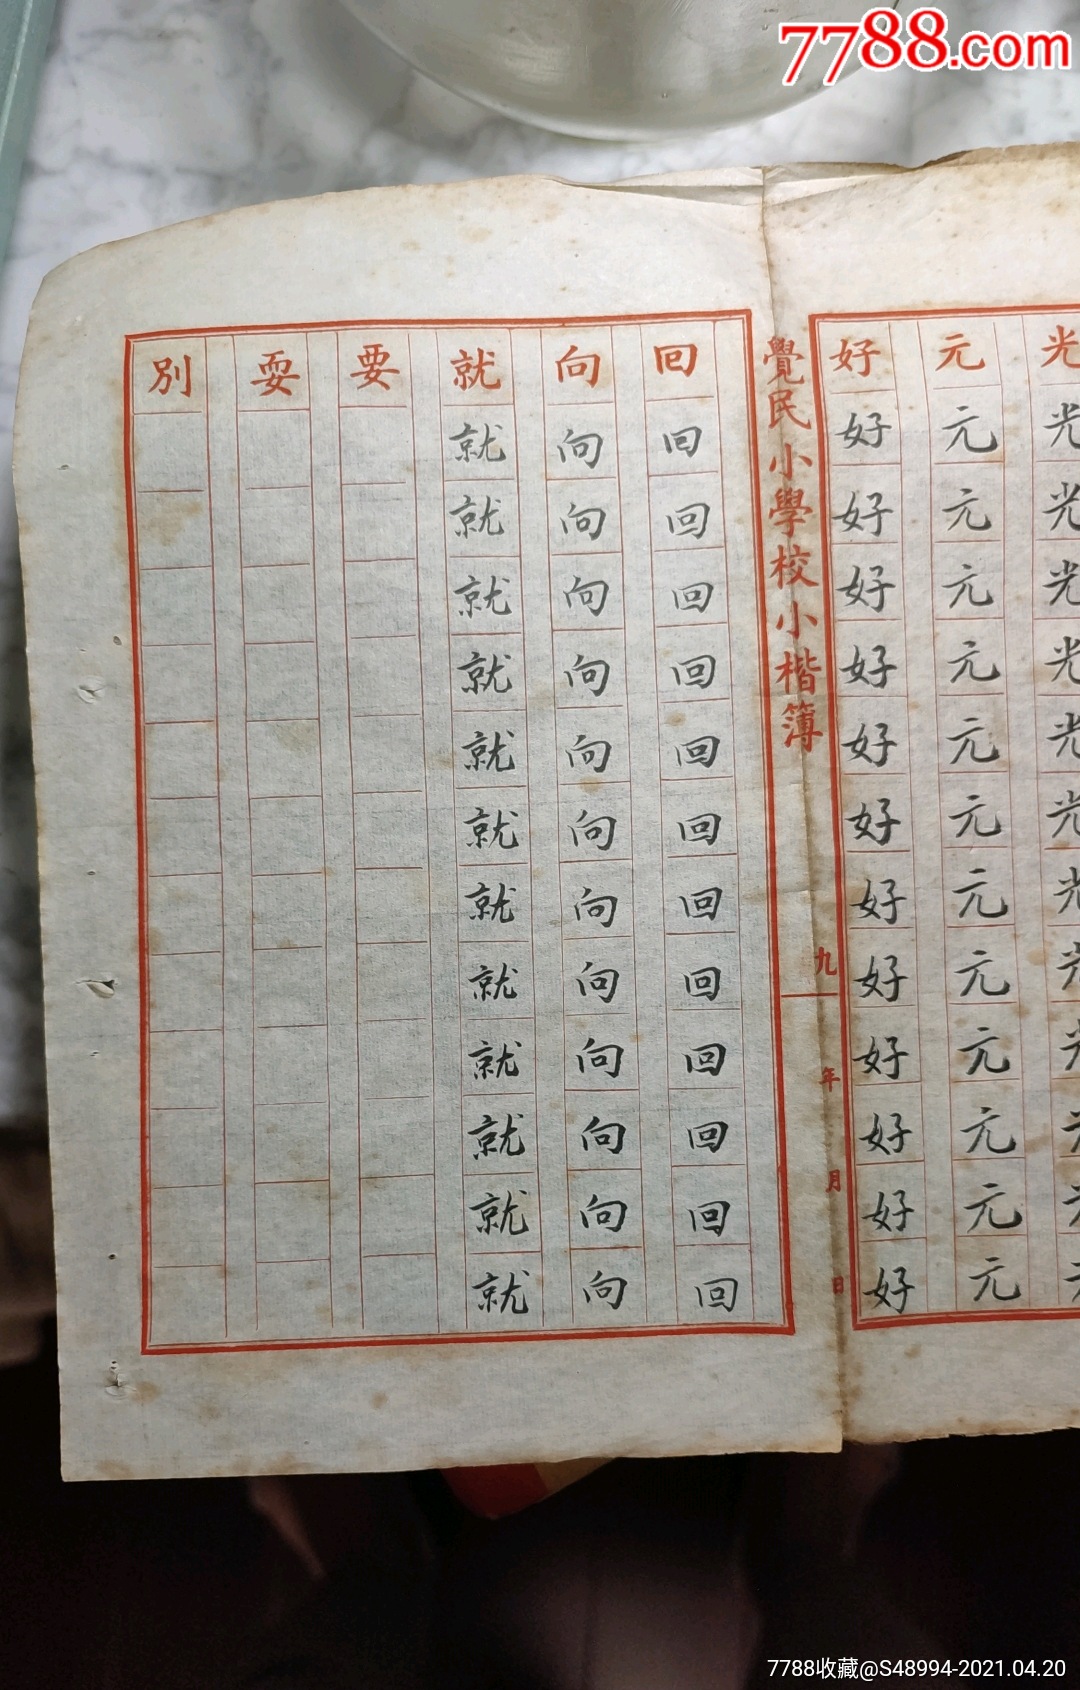 7788.com
光光光光光光光
元元元元元元元元元元元元元
好好好好好好好好好好好好好
覺民小學校小楷簿
九 年 月 日
回回回回回回回回回回回回回
向向向向向向向向向向向向向
就就就就就就就就就就就就就
要
耍
別
7788收藏@S48994-2021.04.20